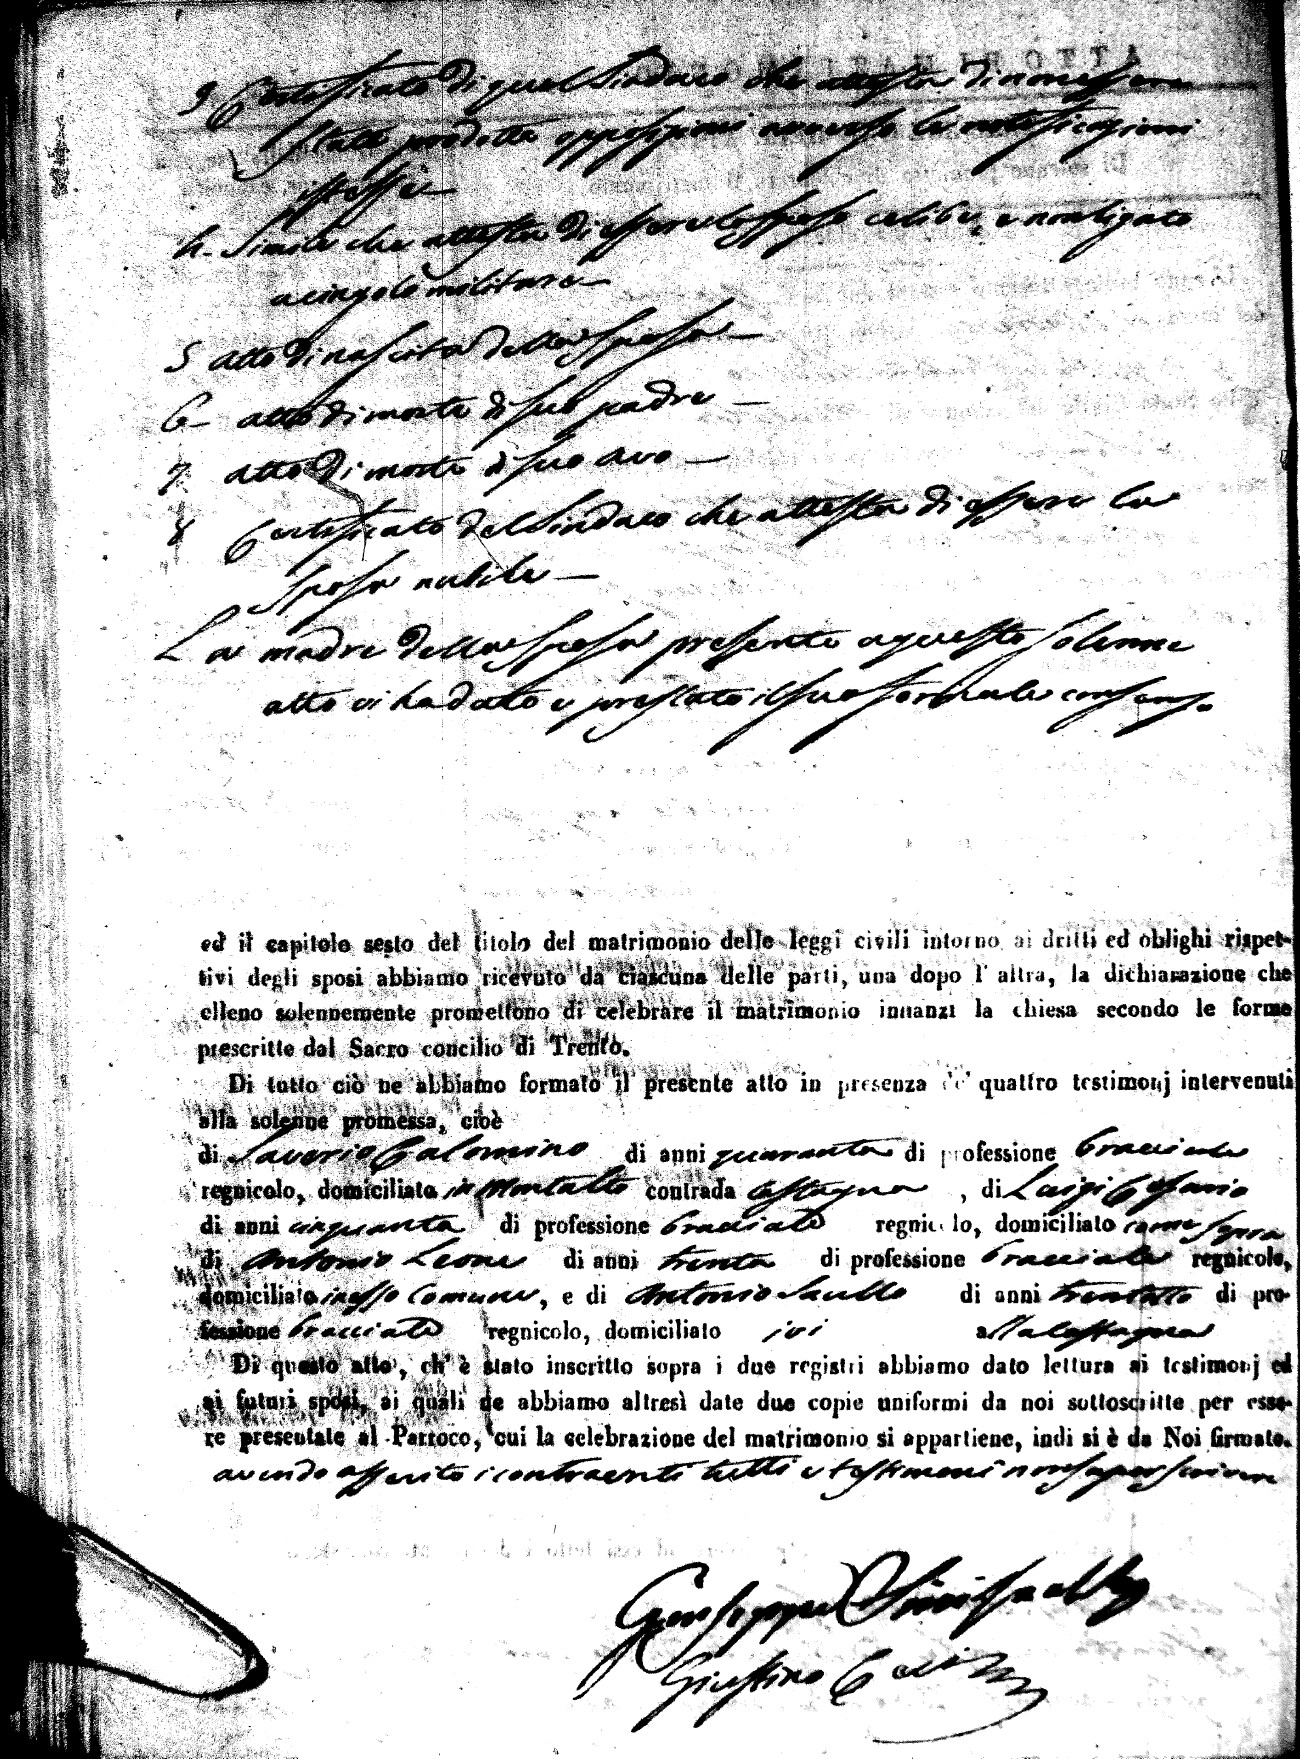 3 Certificato di quel Sindaco che attesta di non essere
state prodotte opposizioni avverso le notificazioni
istesse
4. Simile che attesta di essere lo sposo celibe, e non ligato
a cingolo militare
5 atto di nascita della sposa
6 atto di morte di suo padre
7 atto di morte di suo avo
8 Certificato del Sindaco che attesta di essere la
sposa nubile
La madre della sposa presente a questo solenne
atto vi ha dato e prestato il suo formale consenso
ed il capitolo sesto del titolo del matrimonio delle leggi civili intorno ai dritti ed oblighi rispet-
tivi degli sposi abbiamo ricevuto da ciascuna delle parti, una dopo l'altra, la dichiarazione che
elleno solennemente promettono di celebrare il matrimonio innanzi la chiesa secondo le forme
prescritte dal Sacro concilio di Trento.
Di tutto ciò ne abbiamo formato il presente atto in presenza de' quattro testimonj intervenuti
alla solenne promessa, cioè
di Saverio Calomino di anni quaranta di professione bracciale
regnicolo, domiciliato in Montalto contrada Castagna, di Luigi Cesario
di anni cinquanta di professione bracciale regnicolo, domiciliato come sopra
di Antonio Leone di anni trenta di professione bracciale regnicolo,
domiciliato in esso Comune, e di Antonio Saullo di anni trentotto di pro-
fessione bracciale regnicolo, domiciliato ivi alla Castagna
Di questo atto, ch'è stato inscritto sopra i due registri abbiamo dato lettura ai testimonj ed
ai futuri sposi, ai quali ne abbiamo altresì date due copie uniformi da noi sottoscritte per esse-
re presentate al Parroco, cui la celebrazione del matrimonio si appartiene, indi si è da Noi firmato.
avendo asserito i contraenti tutti e testimoni non saper scrivere
Giuseppe
Giustino